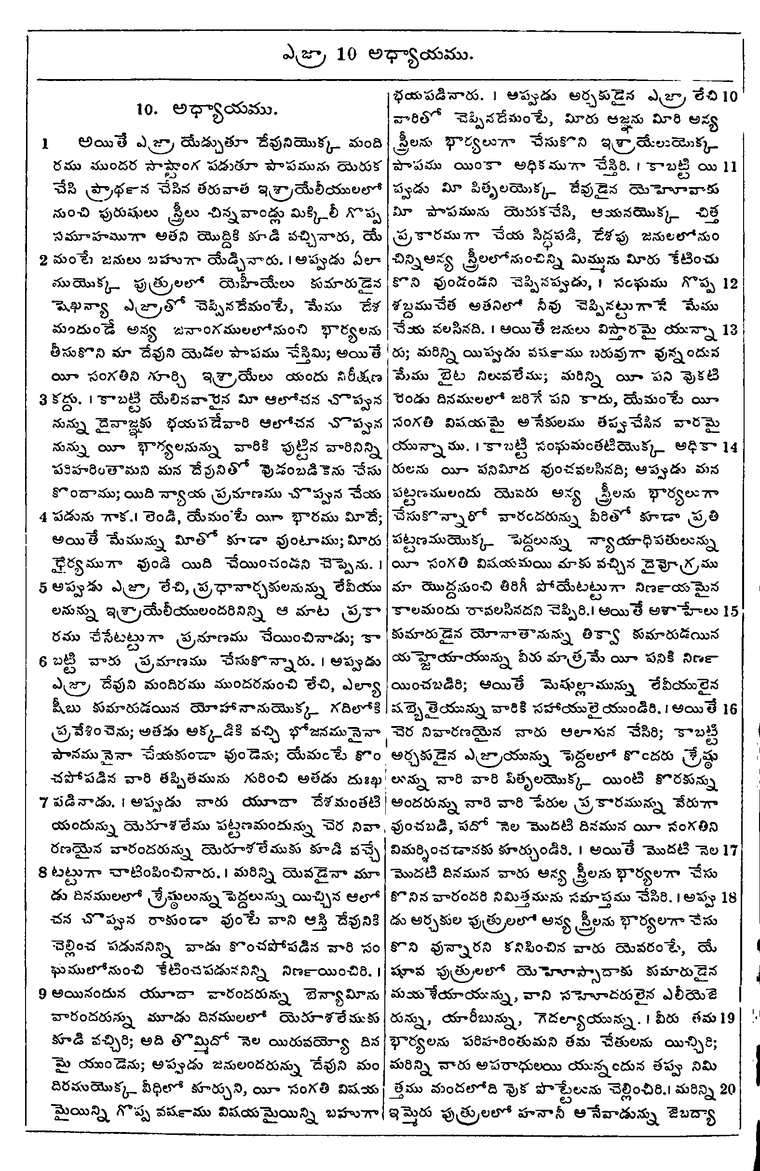 ఎజ్రా 10 అధ్యాయము.
10. అధ్యాయము.
1 అయితే ఎజ్రా యేడ్చుతూ దేవునియొక్క మంది
రము ముందర సాష్టాంగ పడుతూ పాపమును యెరుక
చేసి ప్రార్థన చేసిన తరువాత ఇశ్రాయేలీయులలో
నుంచి పురుషులు స్త్రీలు చిన్నవాండ్లు మిక్కిలీ గొప్ప
సమాహముగా అతని యొద్దికి కూడి వచ్చినారు, యే
2 మంటే జనులు బహుగా యేడ్చినారు. । అప్పుడు ఏలా
ముయొక్క పుత్రులలో యెహీయేలు కుమారుడైన
షెఖన్యా ఎజ్రాతో చెప్పినదేమంటే, మేము దేశ
మందుండే అన్య జనాంగములలోనుంచి భార్యలను
తీసుకొని మా దేవుని యెడల పాపము చేస్తిమి; అయితే
యీ సంగతిని గూర్చి ఇశ్రాయేలు యందు నిరీక్షణ
3 కద్దు. । కాబట్టి యేలినవారైన మీ ఆలోచన చొప్పున
నున్ను దైవాజ్ఞకు భయపడేవారి ఆలోచన చొప్పున
నున్ను యీ భార్యలనున్ను వారికి పుట్టిన వారినిన్ని
పరిహరింతామని మన దేవునితో వుడంబడికెను చేసు
కొందాము; యిది న్యాయ ప్రమాణము చొప్పున చేయ
4 పడును గాక. । లెండి, యేమంటే యీ భారము మీదే;
అయితే మేమున్ను మీతో కూడా వుంటాము; మీరు
ధైర్యముగా వుండి యిది చేయించండని చెప్పెను. ।
5 అప్పుడు ఎజ్రా లేచి, ప్రధానార్చకులనున్ను లేవీయు
లనున్ను ఇశ్రాయేలీయులందరినిన్ని ఆ మాట ప్రకా
రము చేసేటట్టుగా ప్రమాణము చేయించినాడు; కా
6 బట్టి వారు ప్రమాణము చేసుకొన్నారు. । అప్పుడు
ఎజ్రా దేవుని మందిరము ముందరనుంచి లేచి, ఎల్యా
షీబు కుమారుడయిన యోహానానుయొక్క గదిలోకి
ప్రవేశించెను; అతడు అక్కడికి వచ్చి భోజనమునైనా
పానమునైనా చేయకుండా వుండెను; యేమంటే కొం
చపోపడిన వారి తప్పితమును గురించి అతడు దుఃఖ
7 పడినాడు. । అప్పుడు వారు యూదా దేశమంతటి
యందున్ను యెరూశలేము పట్టణమందున్ను చెర నివా
రణయైన వారందరున్ను యెరూశలేముకు కూడి వచ్చే
8 టట్టుగా చాటింపించినారు. । మరిన్ని యెవడైనా మూ
డు దినములలో శ్రేష్ఠులున్ను పెద్దలున్ను యిచ్చిన ఆలో
చన చొప్పున రాకుండా వుంటే వాని ఆస్తి దేవునికి
చెల్లించ పడుననిన్ని వాడు కొంచపోపడిన వారి సం
ఘములోనుంచి కేటించపడుననిన్ని నిర్ణయించిరి. ।
9 అయినందున యూదా వారందరున్ను బెన్యామీను
వారందరున్ను మూడు దినములలో యెరూశలేముకు
కూడి వచ్చిరి; అది తొమ్మిదో నెల యిరువయ్యో దిన
మై యుండెను; అప్పుడు జనులందరున్ను దేవుని మం
దిరముయొక్క వీధిలో కూర్చుని, యీ సంగతి విషయ
మైయిన్ని గొప్ప వర్షము విషయమైయిన్ని బహుగా
భయపడినారు. । అప్పుడు అర్చకుడైన ఎజ్రా లేచి 10
వారితో చెప్పినదేమంటే, మీరు అజ్ఞను మీరి అన్య
స్త్రీలను భార్యలుగా చేసుకొని ఇశ్రాయేలుయొక్క
పాపము యింకా అధికముగా చేస్తిరి. । కాబట్టి యి 11
ప్పుడు మీ పితృలయొక్క దేవుడైన యెహోవాకు
మీ పాపమును యెరుకచేసి, ఆయనయొక్క చిత్త
ప్రకారముగా చేయ సిద్ధపడి, దేశపు జనులలోనుం
చిన్ని అన్య స్త్రీలలోనుంచిన్ని మిమ్మును మీరు కేటించు
కొని వుండండని చెప్పినప్పుడు, । సంఘము గొప్ప 12
శబ్దముచేత అతనిలో నీవు చెప్పినట్టుగానే మేము
చేయ వలసినది. । అయితే జనులు విస్తారమై యున్నా 13
రు; మరిన్ని యిప్పుడు వర్షము బరువుగా వున్నందున
మేము బైట నిలువలేము; మరిన్ని యీ పని వొకటి
రెండు దినములలో జరిగే పని కాదు, యేమంటే యీ
సంగతి విషయమై అనేకులము తప్పుచేసిన వారమై
యున్నాము. । కాబట్టి సంఘమంతటియొక్క అధికా 14
రులను యీ పనిమీద వుంచవలసినది; అప్పుడు మన
పట్టణములందు యెవరు అన్య స్త్రీలను భార్యలుగా
చేసుకొన్నారో వారందరున్ను వీరితో కూడా ప్రతి
పట్టణముయొక్క పెద్దలున్ను న్యాయాధిపతులున్ను
యీ సంగతి విషయమయి మాకు వచ్చిన దైవోగ్రము
మా యొద్దనుంచి తిరిగీ పోయేటట్టుగా నిర్ణయమైన
కాలమందు రావలసినదని చెప్పిరి. । అయితే అశాహేలు 15
కుమారుడైన యోనాతానున్ను తిక్వా కుమారుడయిన
యహ్జెయాయున్ను వీరు మాత్రమే యీ పనికి నిర్ణ
యించబడిరి; అయితే మెషుల్లామున్ను లేవీయులైన
షబ్బెతైయున్ను వారికి సహాయులైయుండిరి. । అయితే 16
చెర నివారణయైన వారు ఆలాగున చేసిరి; కాబట్టి
అర్చకుడైన ఎజ్రాయున్ను పెద్దలలో కొందరు శ్రేష్ఠు
లున్ను వారి వారి పితృలయొక్క యింటి కొరకున్ను
అందరున్ను వారి వారి పేరుల ప్రకారమున్ను వేరుగా
వుంచబడి, పదో నెల మొదటి దినమున యీ సంగతిని
విమర్శించడానకు కూర్చుండిరి. । అయితే మొదటి నెల 17
మొదటి దినమున వారు అన్య స్త్రీలను భార్యలగా చేసు
కొనిన వారందరి నిమిత్తమును సమాప్తము చేసిరి. । అప్పు 18
డు అర్చకుల పుత్రులలో అన్య స్త్రీలను భార్యలగా చేసు
కొని వున్నారని కనిపించిన వారు యెవరంటే, యే
షూవ పుత్రులలో యెహోస్సాదాకు కుమారుడైన
మయశేయాయున్ను, వాని సహోదరులైన ఎలీయెజె
రున్ను, యారీబున్ను, గెదల్యాయున్ను. । వీరు తమ 19
భార్యలను పరిహరింతుమని తమ చేతులను యిచ్చిరి;
మరిన్ని వారు అపరాధులయి యున్నందున తప్పు నిమి
త్తము మందలోది వొక పొట్టేలును చెల్లించిరి. । మరిన్ని 20
ఇమ్మెరు పుత్రులలో హనానీ అనేవాడున్ను జెబద్యా